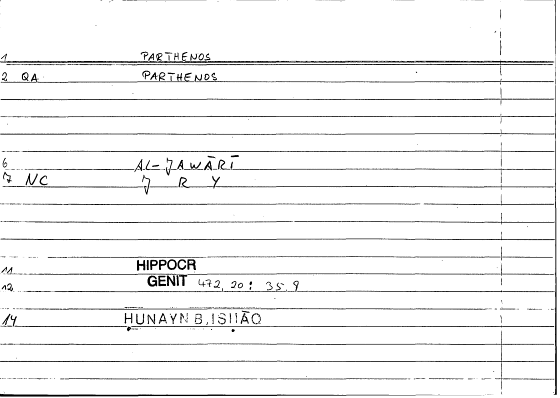 1 PARTHENOS
2 QA PARTHENOS
6 AL-JAWĀRĪ
7 NC J R Y
11 HIPPOCR
12 GENIT 472, 20 : 35.9
14 ḤUNAYN B. ISḤĀQ